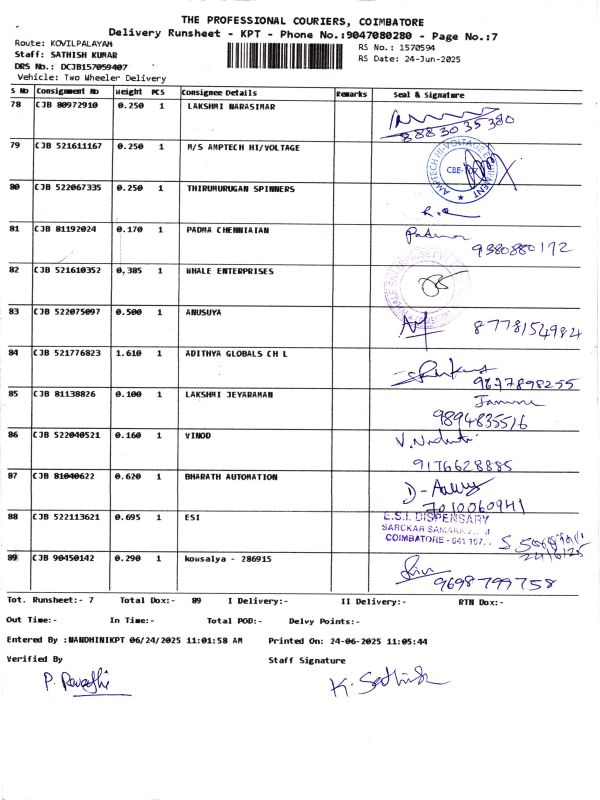 THE PROFESSIONAL COURIERS, COIMBATORE
Delivery Runsheet - KPT - Phone No.:9047080280 - Page No.:7
Route: KOVILPALAYAM
RS No.: 1570594
Staff: SATHISH KUMAR
RS Date: 24-Jun-2025
DRS No.: DCJB157059407
Vehicle: Two Wheeler Delivery
S No Consignment No Weight PCS Consignee Details Remarks Seal & Signature
78 CJB 80972910 0.250 1 LAKSHMI NARASIMAR
8883035380
79 CJB 521611167 0.250 1 M/S AMPTECH HI/VOLTAGE
AMPTECH HI-VOLTAGE EQUIPMENT
80 CJB 522067335 0.250 1 THIRUMURUGAN SPINNERS
81 CJB 81192024 0.170 1 PADMA CHENNIAIAN
9380880172
82 CJB 521610352 0.385 1 WHALE ENTERPRISES
83 CJB 522075097 0.500 1 ANUSUYA
8778154984
84 CJB 521776823 1.610 1 ADITHYA GLOBALS CH L
9677898255
85 CJB 81138826 0.100 1 LAKSHMI JEYARAMAN
9894835516
86 CJB 522040521 0.160 1 VINOD
9176628885
87 CJB 81040622 0.620 1 BHARATH AUTOMATION
7010060941
88 CJB 522113621 0.695 1 ESI
E.S.I. DISPENSARY
COIMBATORE - 641 107.
89 CJB 90450142 0.290 1 kowsalya - 286915
9698799758
Tot. Runsheet:- 7 Total Dox:- 89 I Delivery:- II Delivery:- RTN Dox:-
Out Time:- In Time:- Total POD:- Delvy Points:-
Entered By :NANDHINIKPT 06/24/2025 11:01:58 AM Printed On: 24-06-2025 11:05:44
Verified By Staff Signature
P. Revathi K. Sathish